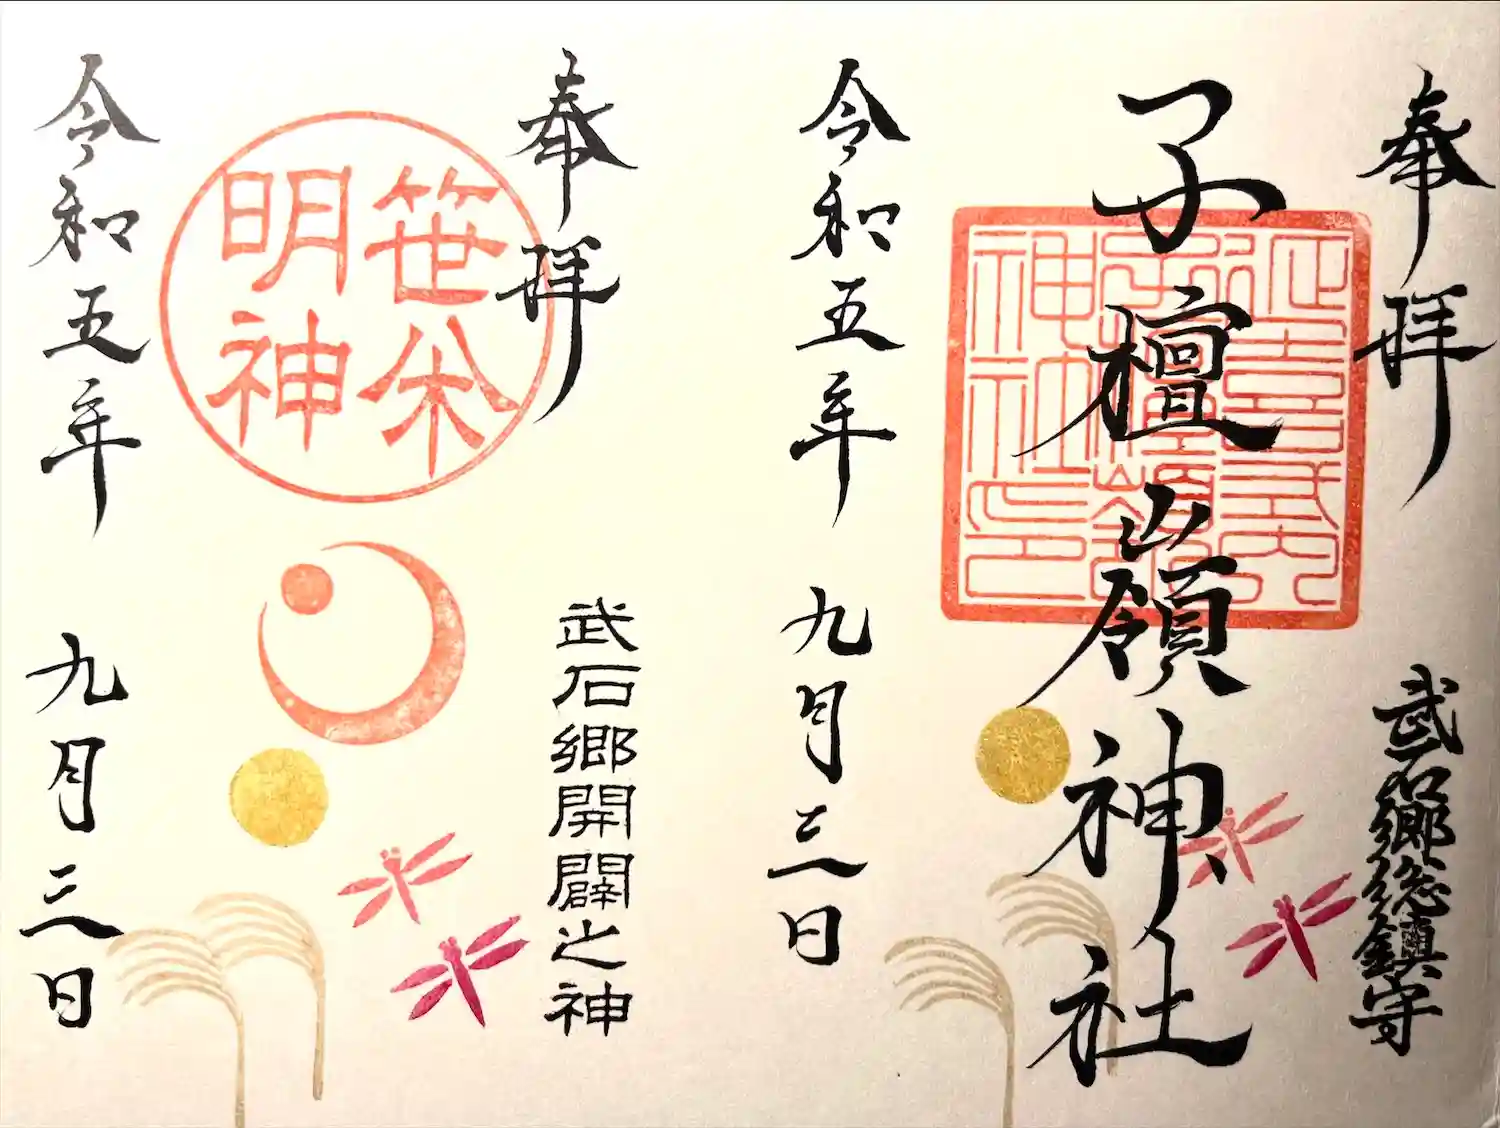 奉拝
武石郷総鎮守
子檀嶺神社
延喜式内
子檀嶺
神社印
令和五年 九月三日
奉拝
武石郷開闢之神
笹
明神
令和五年 九月三日